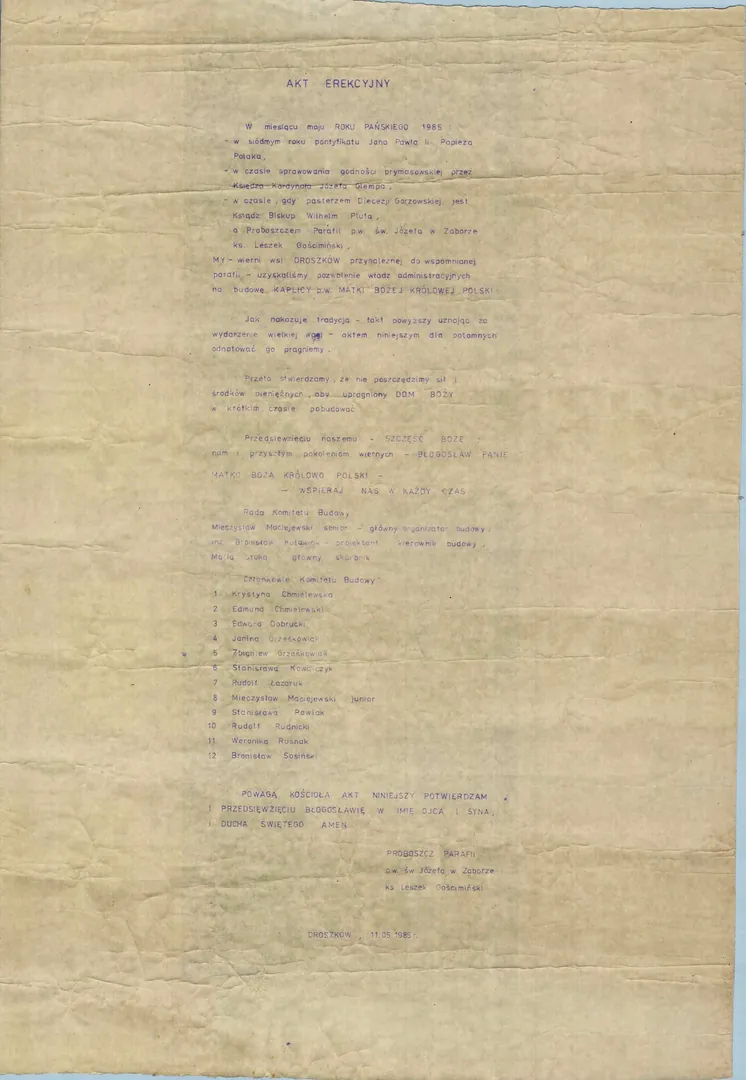 AKT EREKCYJNY
W miesiącu maju ROKU PAŃSKIEGO 1985 :
- w siódmym roku pontyfikatu Jana Pawła II Papieża
Polaka,
- w czasie sprawowania godności prymasowskiej przez
Księdza Kardynała Józefa Glempa,
- w czasie, gdy pasterzem Diecezji Gorzowskiej jest
Ksiądz Biskup Wilhelm Pluta,
a Proboszczem Parafii p.w. św. Józefa w Zaborze
ks. Leszek Gościmiński,
MY - wierni wsi DROSZKÓW przynależnej do wspomnianej
parafii - uzyskaliśmy pozwolenie władz administracyjnych
na budowę KAPLICY p.w. MATKI BOŻEJ KRÓLOWEJ POLSKI
Jak nakazuje tradycja - fakt powyższy uznając za
wydarzenie wielkiej wagi - aktem niniejszym dla potomnych
odnotować go pragniemy.
Przeto stwierdzamy, że nie poszczędzimy sił i
środków pieniężnych, aby upragniony DOM BOŻY
w krótkim czasie pobudować
Przedsięwzięciu naszemu - SZCZĘŚĆ BOŻE -
nam i przyszłym pokoleniom wiernych - BŁOGOSŁAW PANIE
MATKO BOŻA KRÓLOWO POLSKI -
- WSPIERAJ NAS W KAŻDY CZAS
Rada Komitetu Budowy
Mieczysław Maciejewski senior - główny organizator budowy,
inż. Bronisław - projektant kierownik budowy,
główny skarbnik
Członkowie Komitetu Budowy
1 Krystyna Chmielewska
2 Edmund Chmielewski
3 Edward Dobrucki
4 Janina Grześkowiak
5 Zbigniew Grześkowiak
6 Stanisława Kowalczyk
7 Rudolf Łazaruk
8 Mieczysław Maciejewski junior
9 Stanisława Pawlak
10 Rudolf Rudnicki
11 Weronika Rusnak
12 Bronisław Sosiński
POWAGĄ KOŚCIOŁA AKT NINIEJSZY POTWIERDZAM
I PRZEDSIĘWZIĘCIU BŁOGOSŁAWIĘ W IMIĘ OJCA I SYNA,
I DUCHA ŚWIĘTEGO AMEN
PROBOSZCZ PARAFII
p.w. św Józefa w Zaborze
ks Leszek Gościmiński
DROSZKÓW, 11.05.1985r.